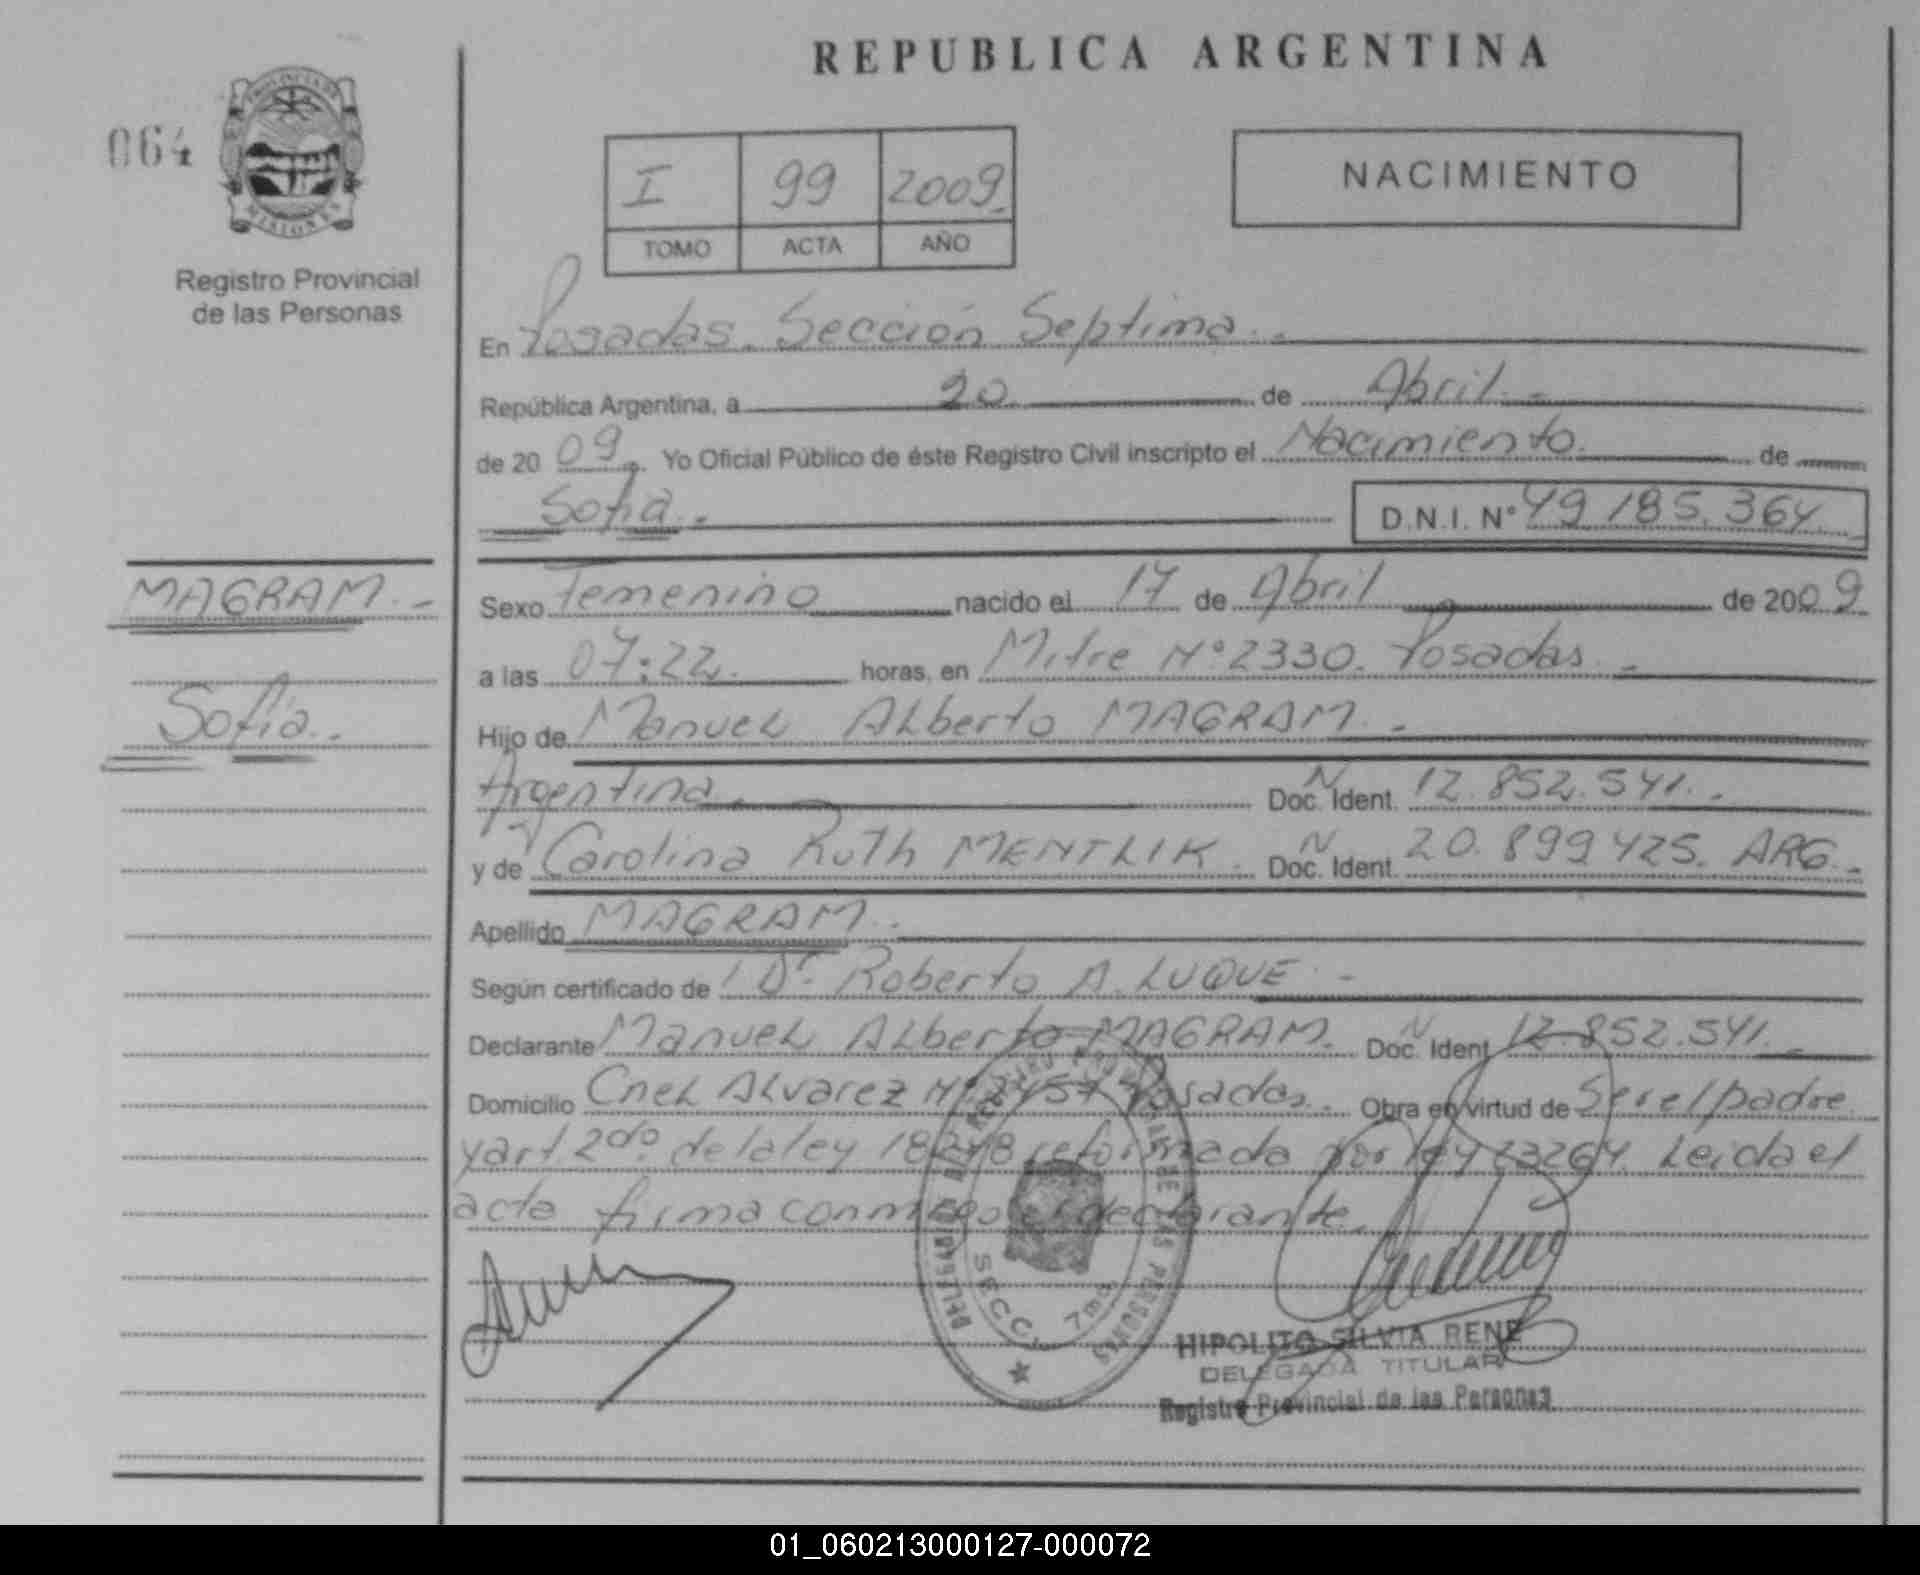 REPUBLICA ARGENTINA
064
PROVINCIA DE
MISIONES
Registro Provincial
de las Personas
I 99 2009
TOMO ACTA AÑO
NACIMIENTO
En Posadas. Sección Septima.-
República Argentina, a 20 de Abril.-
de 2009. Yo Oficial Público de éste Registro Civil inscripto el Nacimiento. de
Sofia.- D.N.I. N° 49.185.364.-
MAGRAM.-
Sofia.-
Sexo femenino nacido el 17 de Abril de 2009
a las 07:22. horas, en Mitre N°2330. Posadas.-
Hijo de Manuel Alberto MAGRAM.-
Argentina.- Doc. N Ident. 12.852.541.-
y de Carolina Ruth MENTLIK. Doc. N Ident. 20.899425. ARG.-
Apellido MAGRAM.-
Según certificado de Dr. Roberto A. LUQUE.-
Declarante Manuel Alberto MAGRAM. Doc. N Ident 12.852.541.-
Domicilio Cnel Alvarez N° 2457 Posadas.- Obra en virtud de Ser el padre
y art. 2do. de la ley 18248 reformada por ley 23264. Leida el
acta firma conmigo el declarante.
DELEGACION DEL REGISTRO PROVINCIAL DE LAS PERSONAS
SECC. 7ma
HIPOLITO SILVIA RENE
DELEGADA TITULAR
Registro Provincial de las Personas
01_060213000127-000072